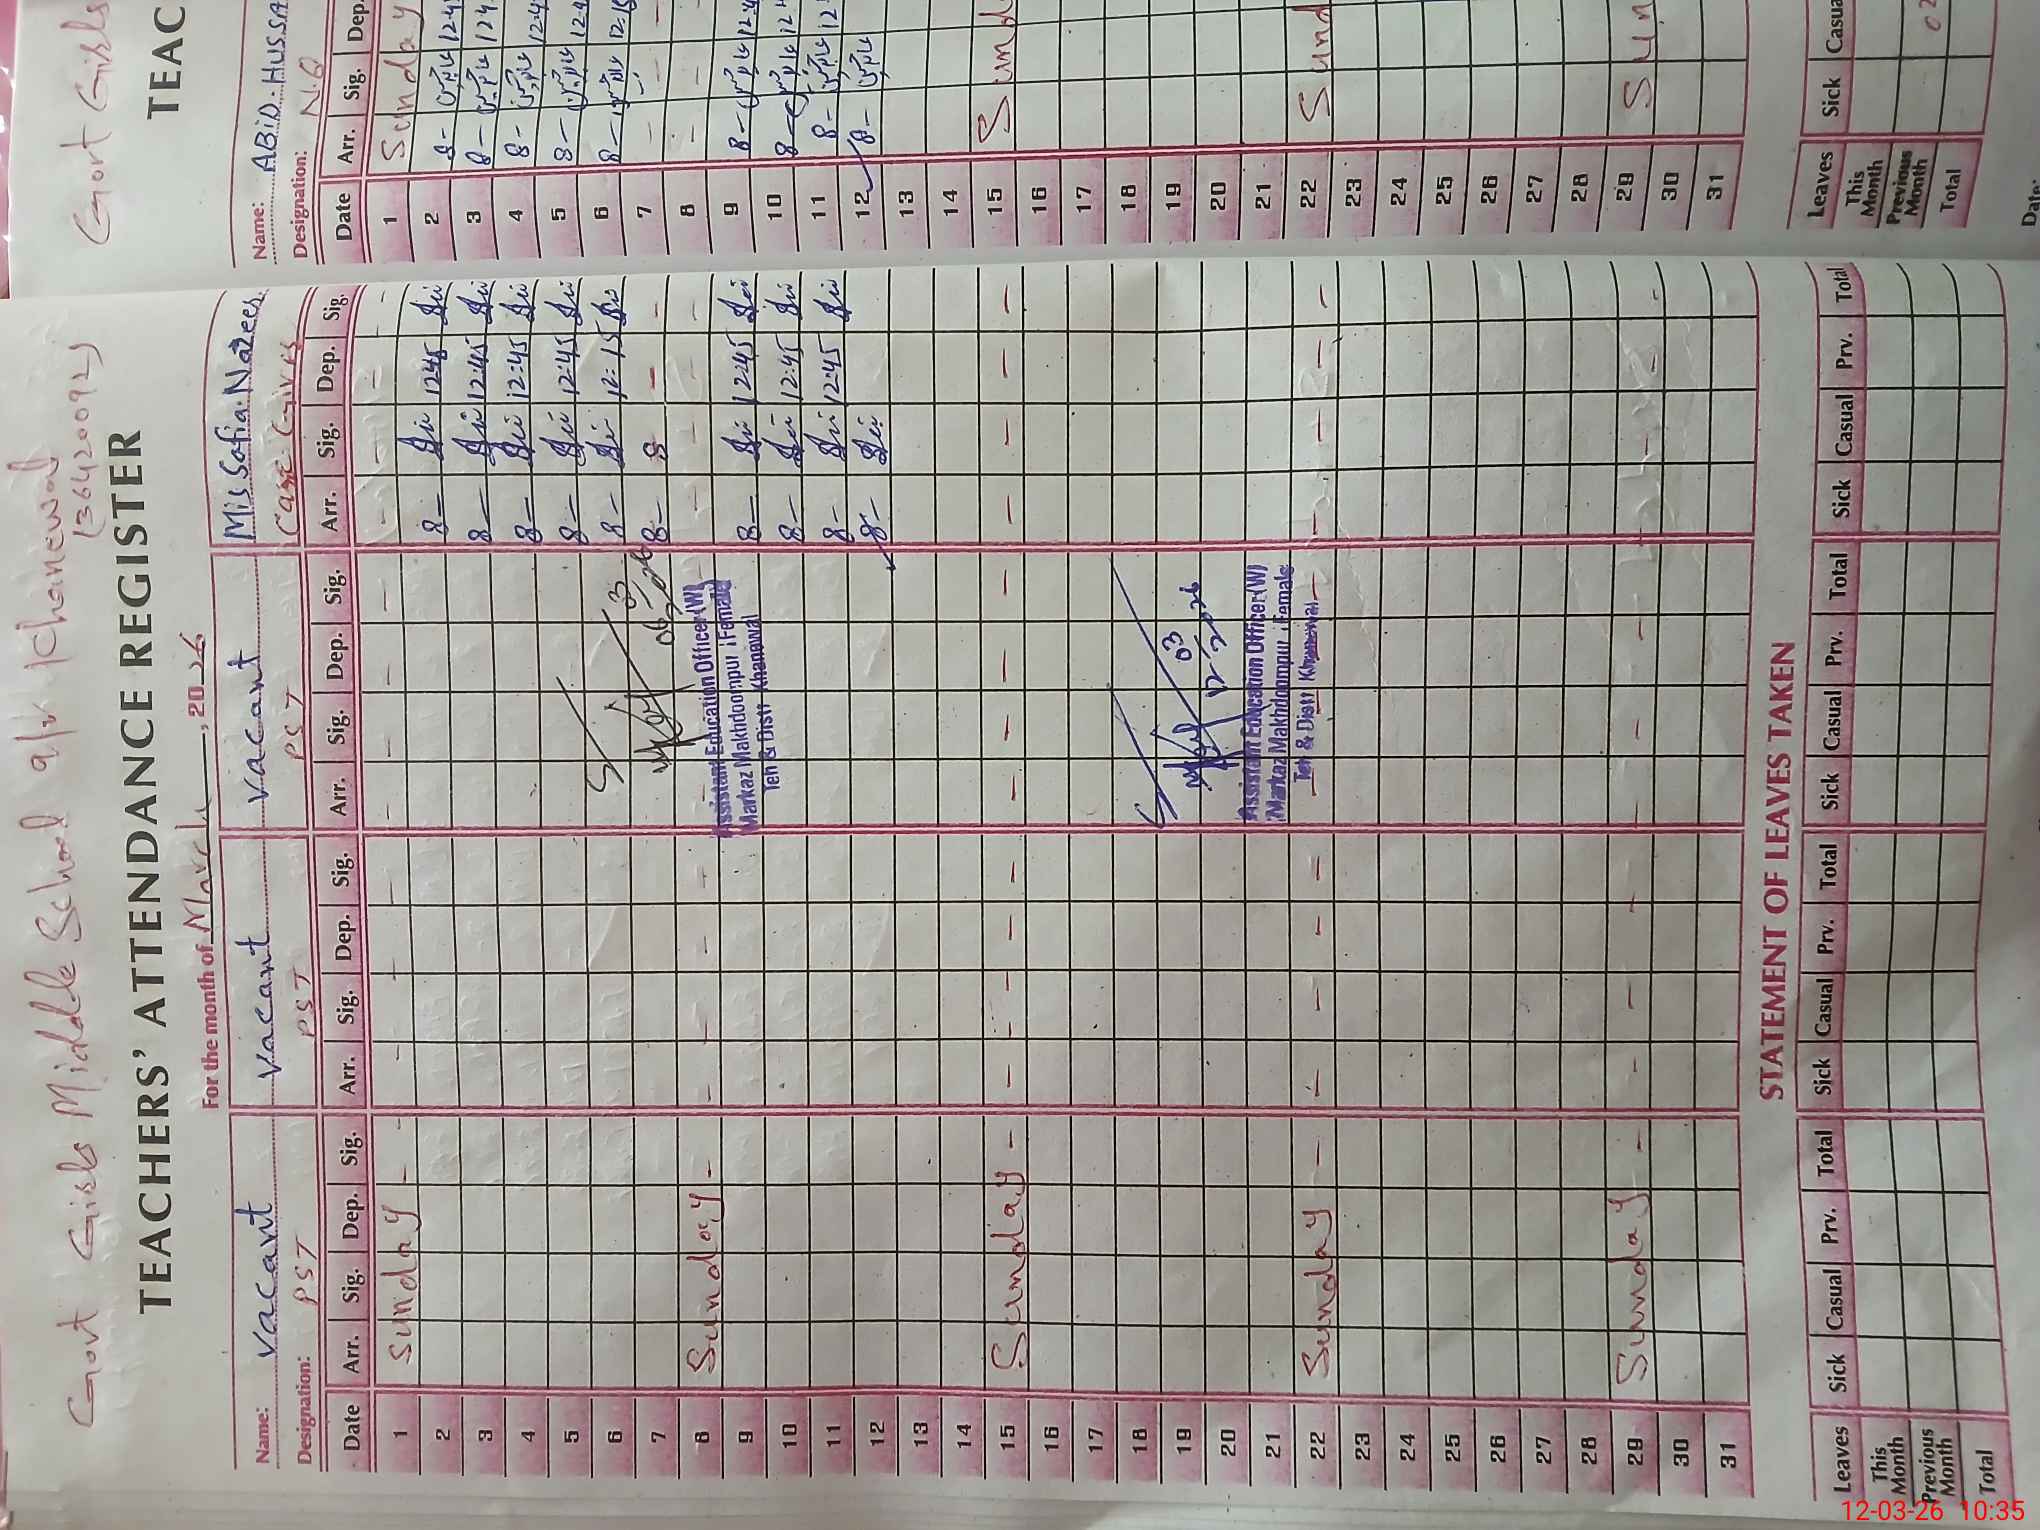 Govt Girls Middle School 9/V Khanewal
(36420092)
TEACHERS' ATTENDANCE REGISTER
For the month of March, 2026
Name: Vacant Vacant Vacant Mis Sofia
Designation: PST PST PST
Date Arr. Sig. Dep. Sig. Arr. Sig. Dep. Sig. Arr. Sig. Dep. Sig. Arr. Sig. Dep. Sig.
1 Sunday - - - - - - - - - -
2 8- 12:45
3 8- 12:45
4 8- 12:45
5 8- 12:45
6 8- 12:15
7 8- 8 - -
8 Sunday - - - - - - - - - -
9 8- 12:45
10 8- 12:45
11 8- 12:45
12 8-
13
14
15 Sunday - - - - - - - - - - - - -
16
17
18
19
20
21
22 Sunday - - - - - - - - - -
23
24
25
26
27
28
29 Sunday - - - - - - - - - -
30
31
06/03/26
Assistant Education Officer (W)
Markaz Makhdoompur (Female)
Teh & Distt Khanewal
12/03/2026
Assistant Education Officer (W)
Markaz Makhdoompur (Female)
Teh & Distt Khanewal
STATEMENT OF LEAVES TAKEN
Leaves Sick Casual Prv. Total Sick Casual Prv. Total Sick Casual Prv. Total Sick Casual Prv. Total
This Month
Previous Month
Total
Govt Girls
TEAC
Name: ABID HUSSA
Designation: N.Q
Date Arr. Sig. Dep.
1 Sunday
2 8- 12:4
3 8- 124
4 8- 12:4
5 8- 12:4
6 8- 12:15
7 - - -
8 - - -
9 8- 12:4
10 8- 12
11 8- 12
12 8-
13
14
15 Sund
16
17
18
19
20
21
22 Sund
23
24
25
26
27
28
29 Sun
30
31
Leaves Sick Casua
This Month
Previous Month 02
Total
Date:
12-03-26 10:35